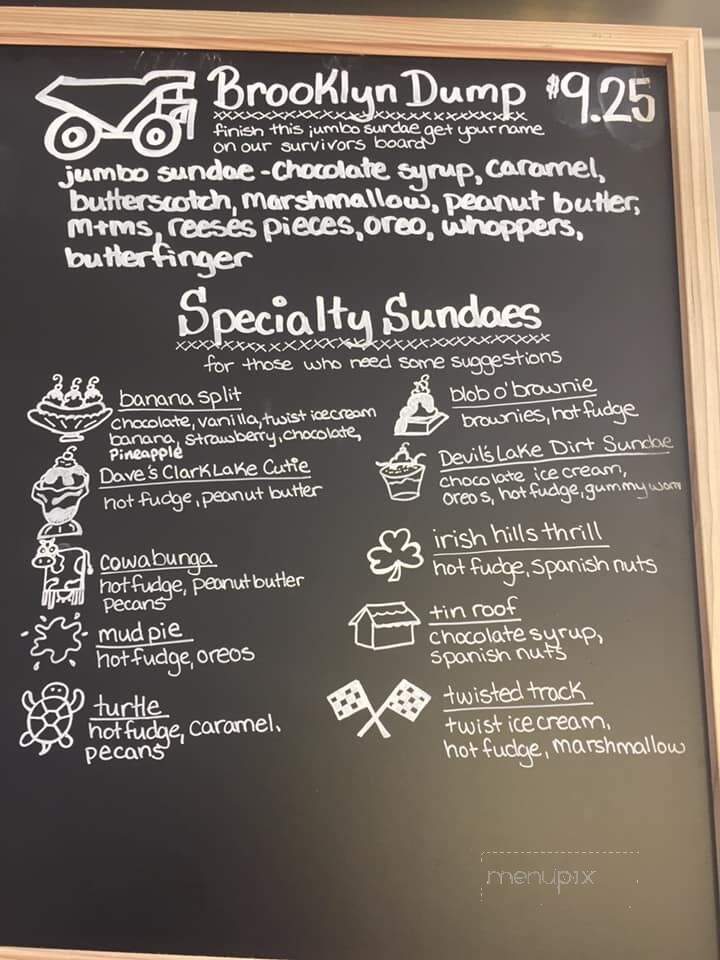 Brooklyn Dump $9.25
finish this jumbo sundae get your name
on our survivors board
jumbo sundae - chocolate syrup, caramel,
butterscotch, marshmallow, peanut butter,
m+ms, reeses pieces, oreo, whoppers,
butterfinger
Specialty Sundaes
for those who need some suggestions
banana split
chocolate, vanilla, twist icecream
banana, strawberry, chocolate,
Pineapple
Dave's Clark Lake Cutie
hot fudge, peanut butter
cowabunga
hot fudge, peanut butter
pecans
mud pie
hot fudge, oreos
turtle
hot fudge, caramel,
pecans
blob o' brownie
brownies, hot fudge
Devil's Lake Dirt Sundae
chocolate ice cream,
oreos, hot fudge, gummy worm
irish hills thrill
hot fudge, Spanish nuts
tin roof
chocolate syrup,
spanish nuts
twisted track
twist ice cream,
hot fudge, marshmallow
menupix